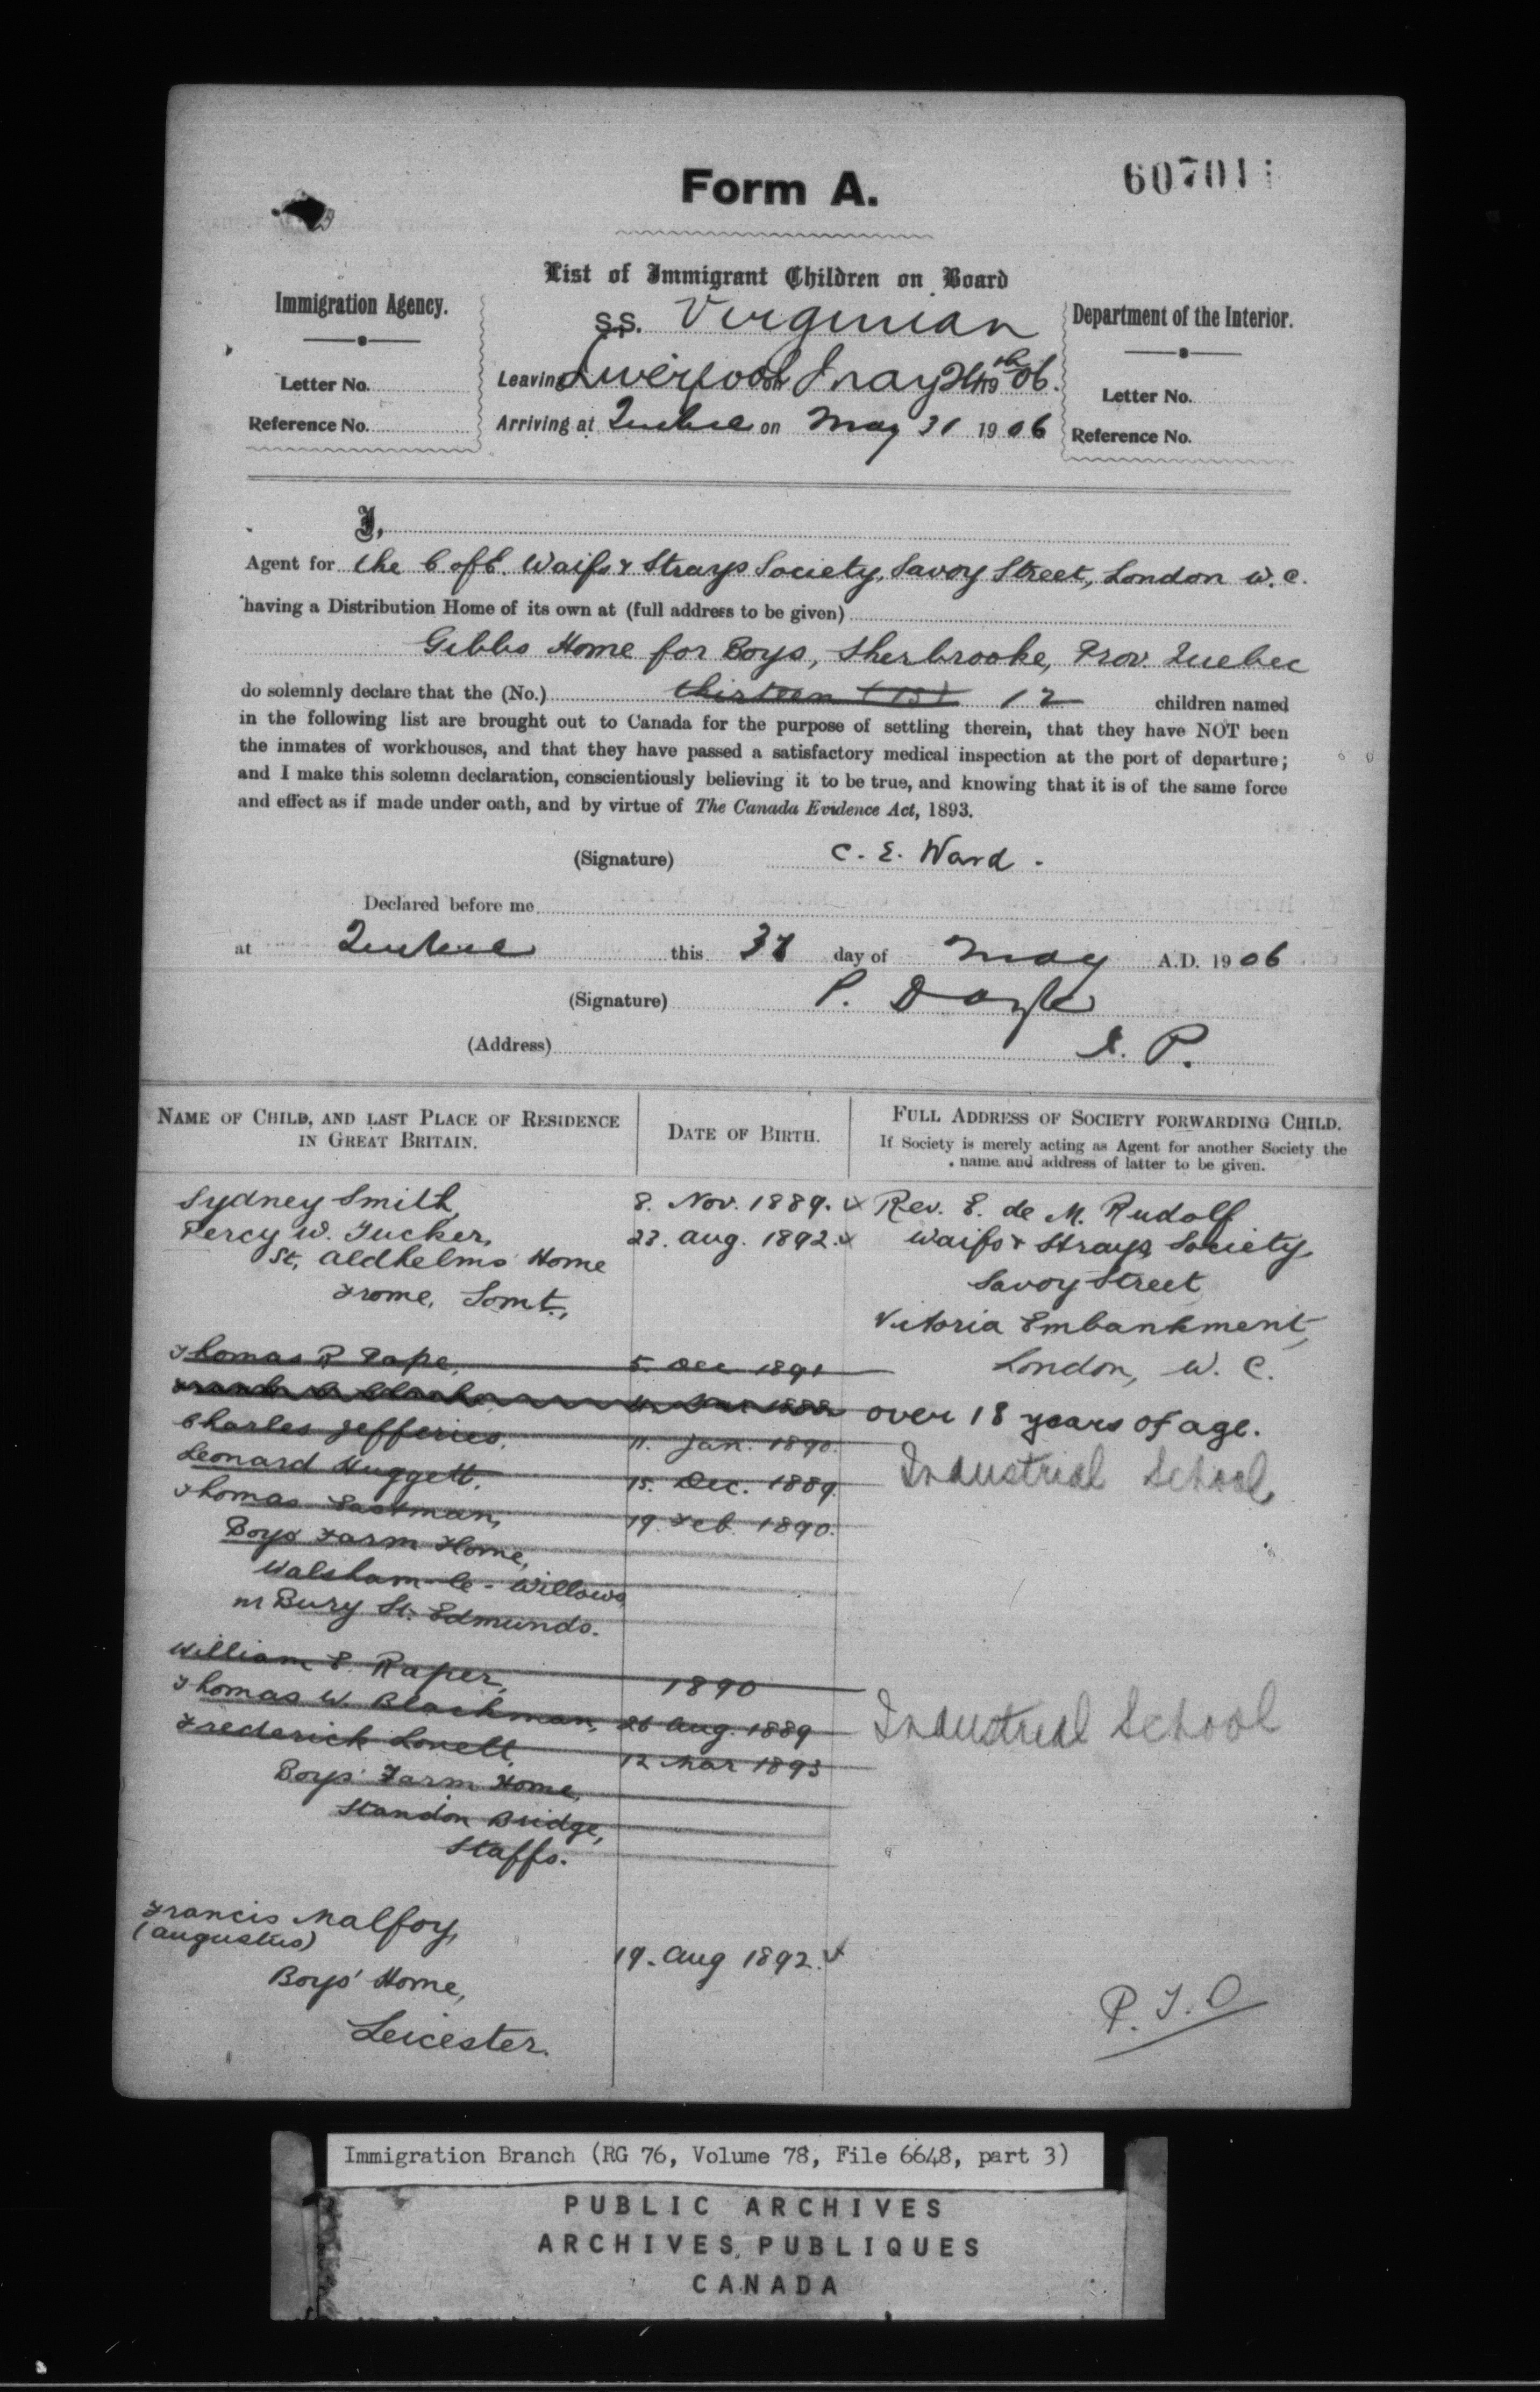 Form A.
60701
List of Immigrant Children on Board
Immigration Agency.
SS. Virginian
Department of the Interior.
Letter No.
Leaving Liverpool on May 24th 1906.
Letter No.
Reference No.
Arriving at Quebec on May 31 1906
Reference No.
I,
Agent for the C of E. Waifs & Strays Society, Savoy Street, London W.C.
having a Distribution Home of its own at (full address to be given)
Gibbs Home for Boys, Sherbrooke, Prov. Quebec
do solemnly declare that the (No.) thirteen (13) 12 children named
in the following list are brought out to Canada for the purpose of settling therein, that they have NOT been
the inmates of workhouses, and that they have passed a satisfactory medical inspection at the port of departure;
and I make this solemn declaration, conscientiously believing it to be true, and knowing that it is of the same force
and effect as if made under oath, and by virtue of The Canada Evidence Act, 1893.
(Signature) C. E. Ward.
Declared before me
at Quebec this 31 day of May A.D. 1906
(Signature) P. Doyle
(Address) J. P.
NAME OF CHILD, AND LAST PLACE OF RESIDENCE
IN GREAT BRITAIN.
DATE OF BIRTH.
FULL ADDRESS OF SOCIETY FORWARDING CHILD.
If Society is merely acting as Agent for another Society the
name and address of latter to be given.
Sydney Smith, 8. Nov. 1889. Rev. E. de M. Rudolf
Percy W. Tucker, 23. Aug. 1892. Waifs & Strays Society
St. Aldhelms Home Savoy Street
Frome, Somt., Victoria Embankment,
Thomas R Pape, 5. Dec 1891 London, W. C.
over 18 years of age.
Charles Jefferies, 11. Jan. 1890.
Leonard Huggett, 15. Dec. 1889. Industrial School
Thomas Eastman, 19. Feb. 1890.
Boys Farm Home,
Walsham-le-Willows
nr Bury St. Edmunds.
William E. Raper, 1890
Thomas W. Blackman, 26 Aug. 1889 Industrial School
Frederick Lovell, 12 Mar 1893
Boys' Farm Home,
Standon Bridge,
Staffs.
Francis Malfoy,
(Augustus) 19. Aug 1892.
Boys' Home,
Leicester.
P.T.O
Immigration Branch (RG 76, Volume 78, File 6648, part 3)
PUBLIC ARCHIVES
ARCHIVES PUBLIQUES
CANADA